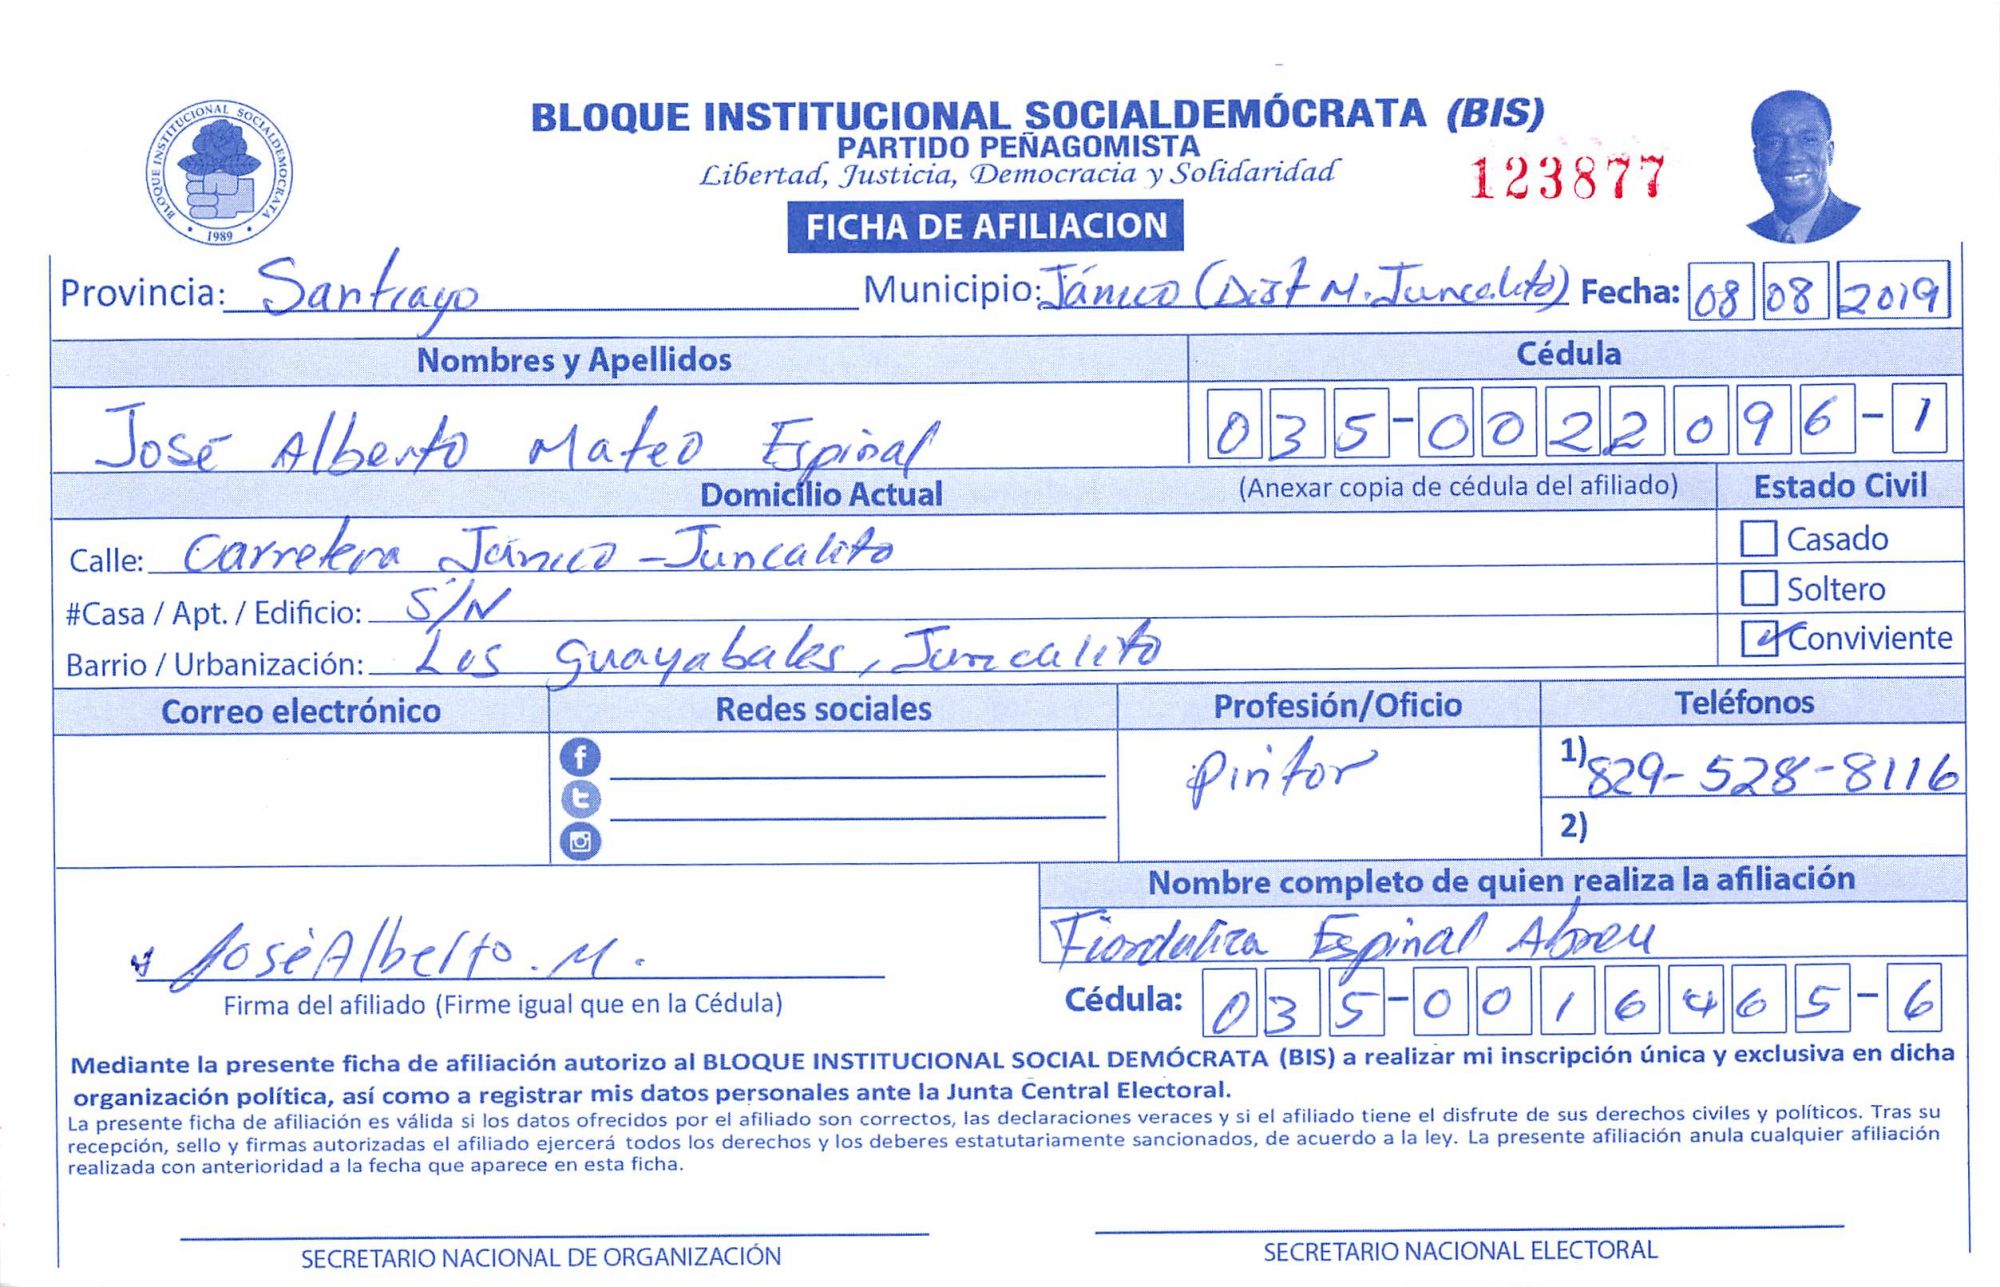 BLOQUE INSTITUCIONAL SOCIALDEMOCRATA
1989
BLOQUE INSTITUCIONAL SOCIALDEMÓCRATA (BIS)
PARTIDO PEÑAGOMISTA
Libertad, Justicia, Democracia y Solidaridad
123877
FICHA DE AFILIACION
Provincia: Santiago Municipio: Jánico (Dist M. Juncalito) Fecha: 08 08 2019
Nombres y Apellidos Cédula
José Alberto Mateo Espinal 035-0022096-1
Domicilio Actual (Anexar copia de cédula del afiliado) Estado Civil
Calle: Carretera Jánico - Juncalito Casado
#Casa / Apt. / Edificio: S/N Soltero
Barrio / Urbanización: Los Guayabales, Juncalito Conviviente
Correo electrónico Redes sociales Profesión/Oficio Teléfonos
Pintor 1) 829-528-8116
2)
Nombre completo de quien realiza la afiliación
Fiordaliza Espinal Abreu
José Alberto. M.
Firma del afiliado (Firme igual que en la Cédula) Cédula: 035-0016465-6
Mediante la presente ficha de afiliación autorizo al BLOQUE INSTITUCIONAL SOCIAL DEMÓCRATA (BIS) a realizar mi inscripción única y exclusiva en dicha
organización política, así como a registrar mis datos personales ante la Junta Central Electoral.
La presente ficha de afiliación es válida si los datos ofrecidos por el afiliado son correctos, las declaraciones veraces y si el afiliado tiene el disfrute de sus derechos civiles y políticos. Tras su
recepción, sello y firmas autorizadas el afiliado ejercerá todos los derechos y los deberes estatutariamente sancionados, de acuerdo a la ley. La presente afiliación anula cualquier afiliación
realizada con anterioridad a la fecha que aparece en esta ficha.
SECRETARIO NACIONAL DE ORGANIZACIÓN SECRETARIO NACIONAL ELECTORAL